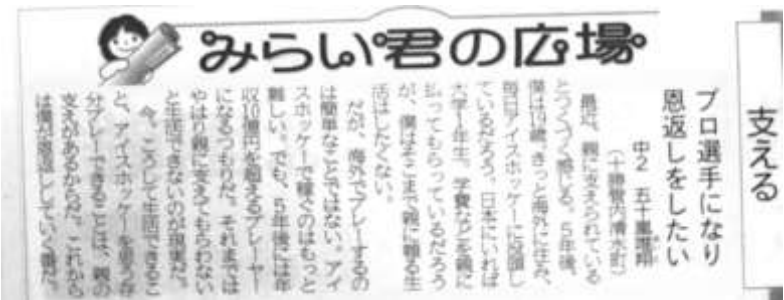 支える
みらい君の広場
プロ選手になり
恩返しをしたい
中2 五十嵐
(十勝管内清水町)
最近、親に支えられている
とつくづく感じる。5年後、
僕は19歳。きっと海外に住み、
毎日アイスホッケーに没頭し
ているだろう。日本にいれば
大学1年生。学費などを親に
払ってもらっているだろう
が、僕はそこまで親に頼る生
活はしたくない。
だが、海外でプレーするの
は簡単なことではない。アイ
スホッケーで稼ぐのはもっと
難しい。でも、5年後には年
収10億円を超えるプレーヤー
になるつもりだ。それまでは
やはり親に支えてもらわない
と生活できないのが現実だ。
今、こうして生活できるこ
と、アイスホッケーを思う存
分プレーできることは、親の
支えがあるからだ。これから
は僕が恩返ししていく番だ。